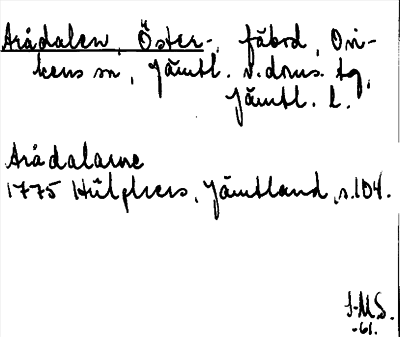 Arådalen, Öster-, fäbod, Ovi-
kens sn, Jämtl. v. doms. tg,
Jämtl. l.
Arådalarne
1775 Hülphers, Jämtland, s. 104.
I-M.S.
-61.